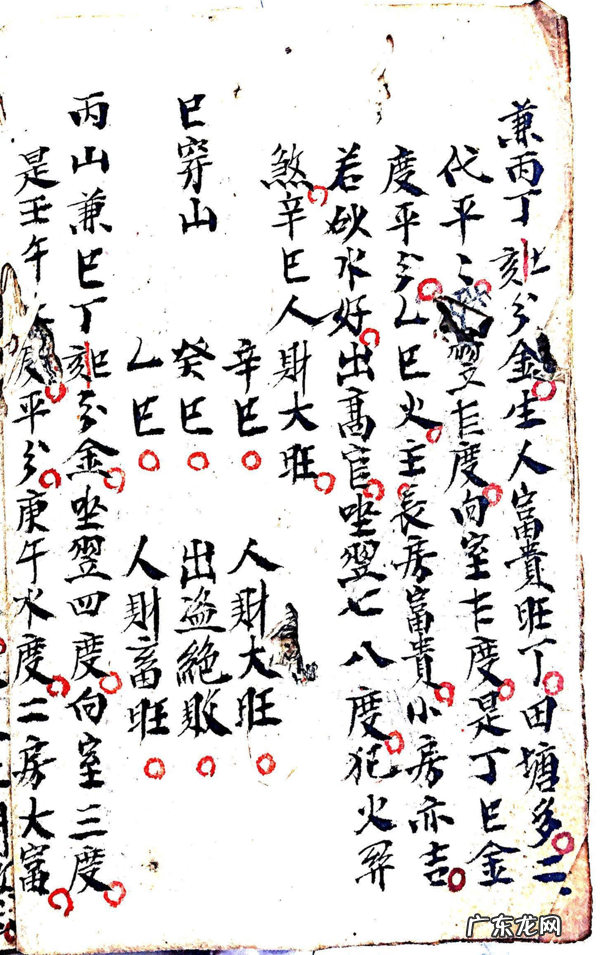 兼丙丁刻分金生人富貴旺丁田塘多二
代平翌七度向室七度是丁巳金
度平分乙巳火主長房富貴小房亦吉
若砂水好出高官坐翌七八度犯火羅
煞辛巳人財大旺
辛巳 人財大旺
巳穿山 癸巳 出盜絕敗
乙巳 人財畜旺
丙山兼巳丁刻分金坐翌四度向室三度
是壬午度平分庚午水度二房大富
广东龙网